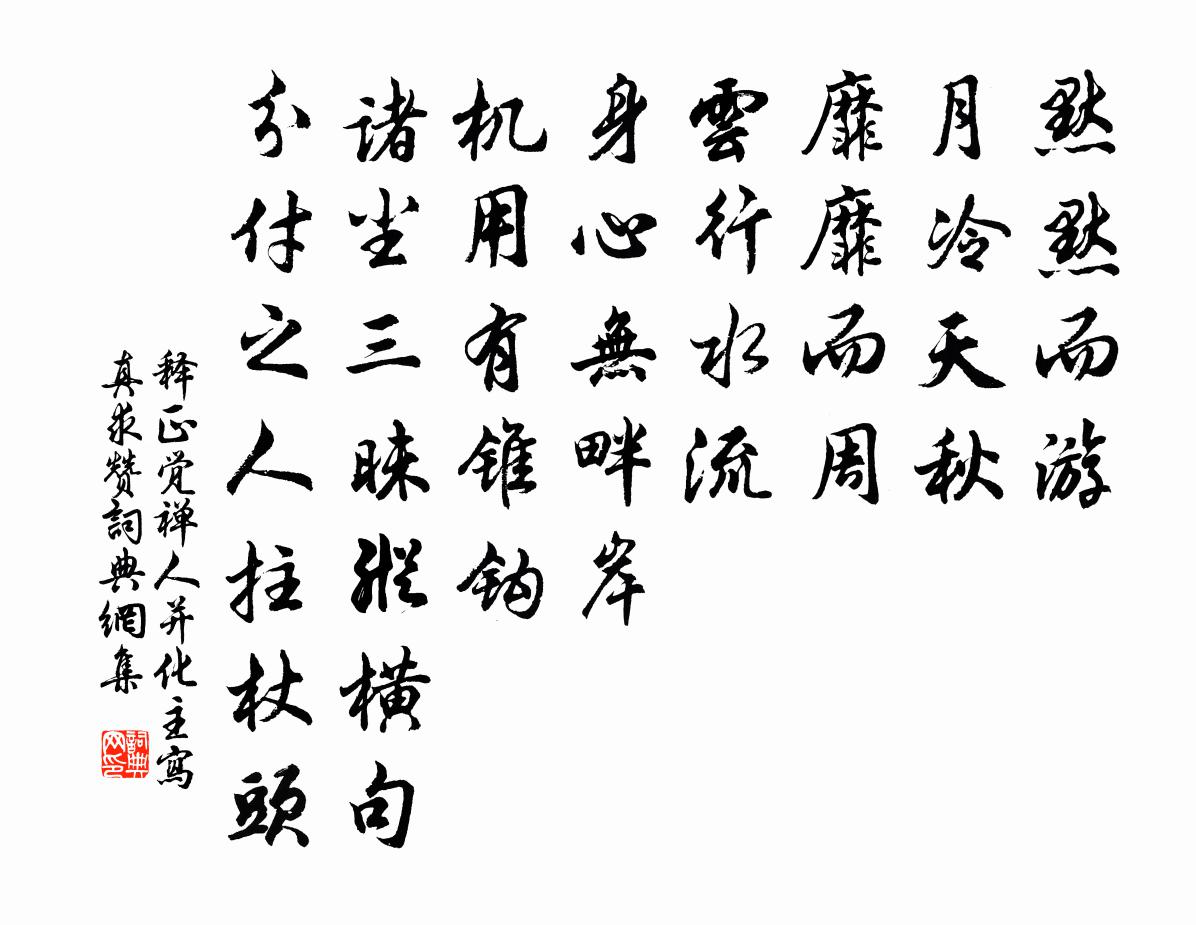 默默而游
月冷天秋
靡靡而周
雲行水流
身心無畔岸
机用有锥钩
诸尘三昧縱橫句
分付之人拄杖頭
释正觉禅人并化主寫
真求赞詞典網集
詞典网印